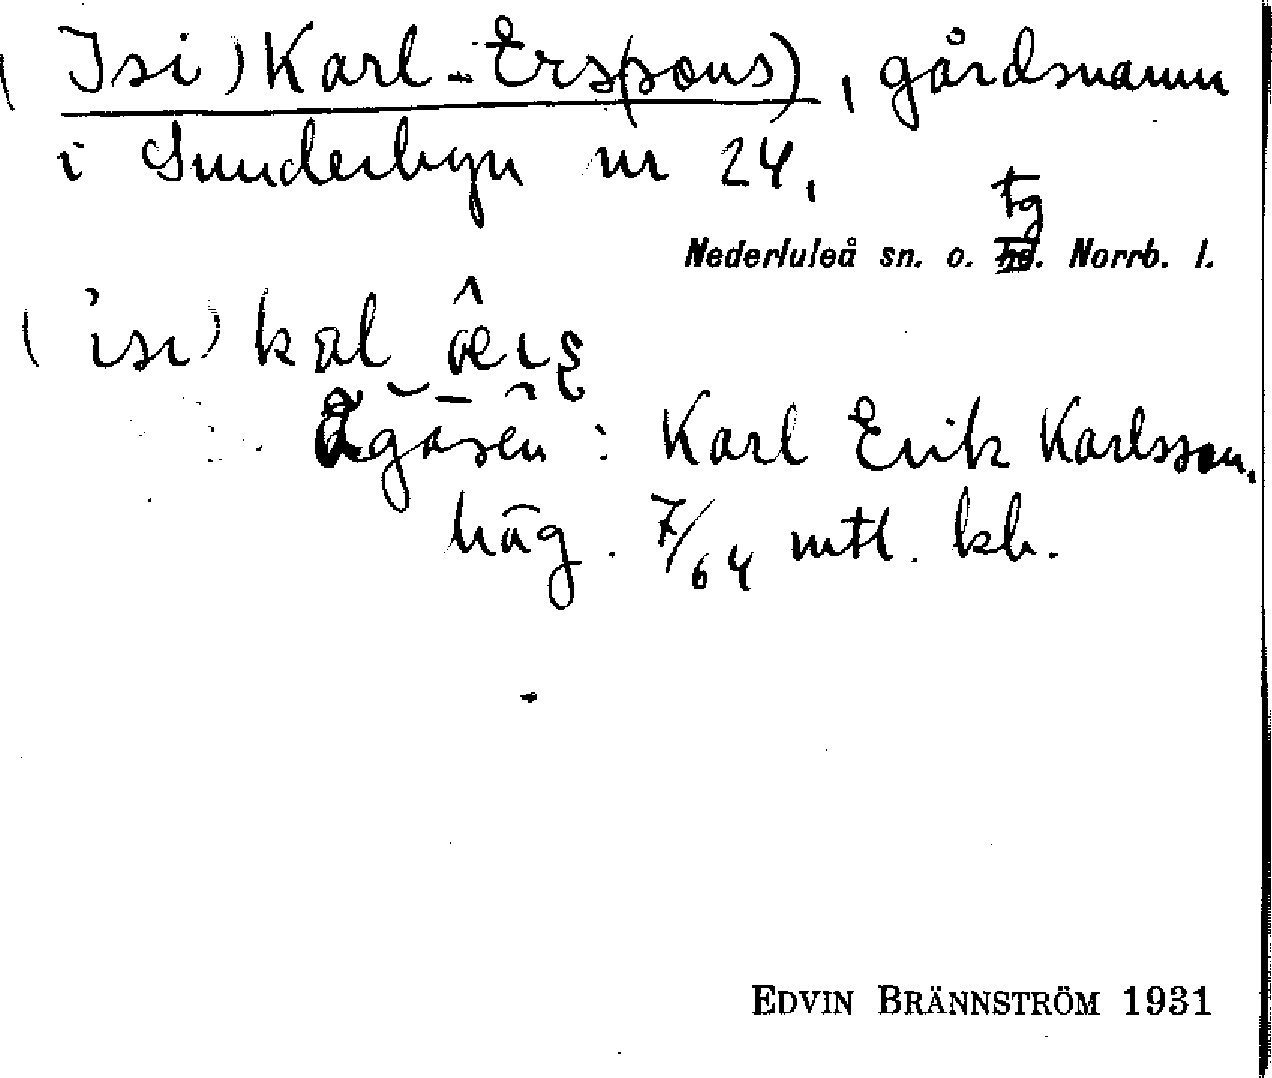 (Isi) Karl-Ers(sons), gårdsnamn
i Sunderbyn nr 24.
tg
Nederluleå sn. o. hd. Norrb. l.
(isi) kal ærs
Ägaren: Karl Erik Karlsson.
häg. 7/64 mtl. kh.
EDVIN BRÄNNSTRÖM 1931